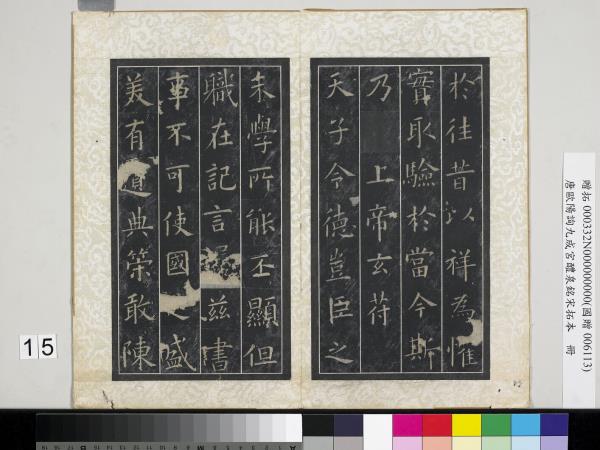 於往昔以祥為懼
實取驗於當今斯
乃 上帝玄苻
天子令德豈臣之
末學所能丕顯但
職在記言茲書
事不可使國盛
美有遺典策敢陳
贈拓 000332N000000000(國贈 006113)
唐歐陽詢九成宮醴泉銘宋拓本 冊
15